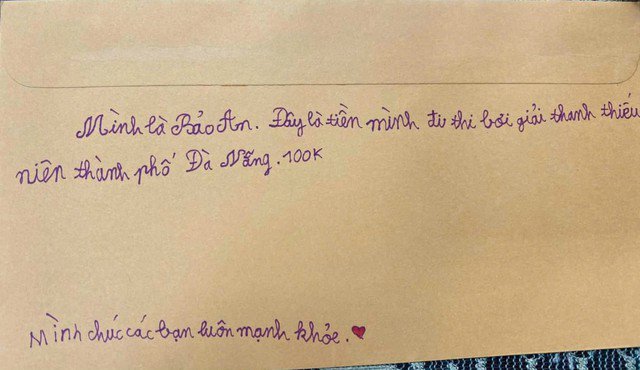 Mình là Bảo An. Đây là tiền mình đi thi bơi giải thanh thiếu
niên thành phố Đà Nẵng. 100K
Mình chúc các bạn luôn mạnh khỏe. ❤